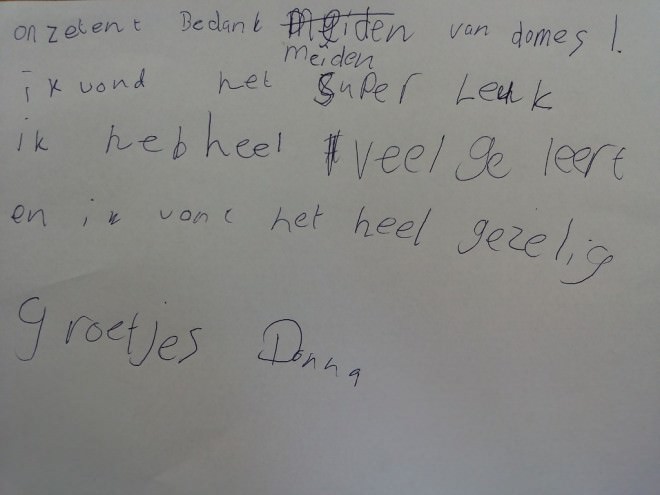 onzetent Bedank meiden van dames 1.
meiden
ik vond het super Leuk
ik heb heel veel ge leert
en ik vond het heel gezelig
groetjes Donna